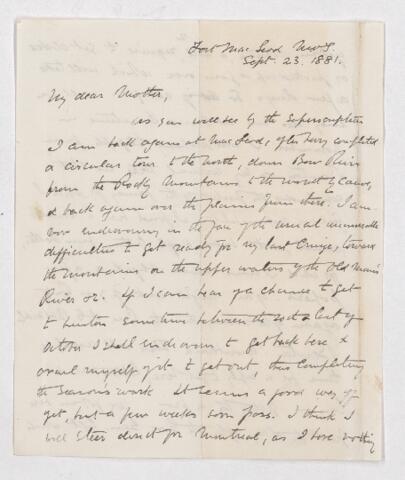 Fort MacLeod N.W.T.
Sept. 23. 1881.
My dear Mother,
As you will see by the superscription
I am back again at MacLeod, after having completed
a circular tour to the north, down Bow River
from the Rocky Mountains to the mouth by canoe,
& back again over the plains from there. I am
now endeavouring in the face of the usual innumerable
difficulties to get ready for my last cruise, toward
the mountains on the upper waters of the Old Man's
River &c. If I can hear of a chance to get
to Benton sometime between the 20th & last of
October I shall endeavour to get back here &
avail myself of it to get out, thus completing
the season's work. It seems a good way off
yet, but a few weeks soon pass. I think I
will steer direct for Montreal, as I have nothing